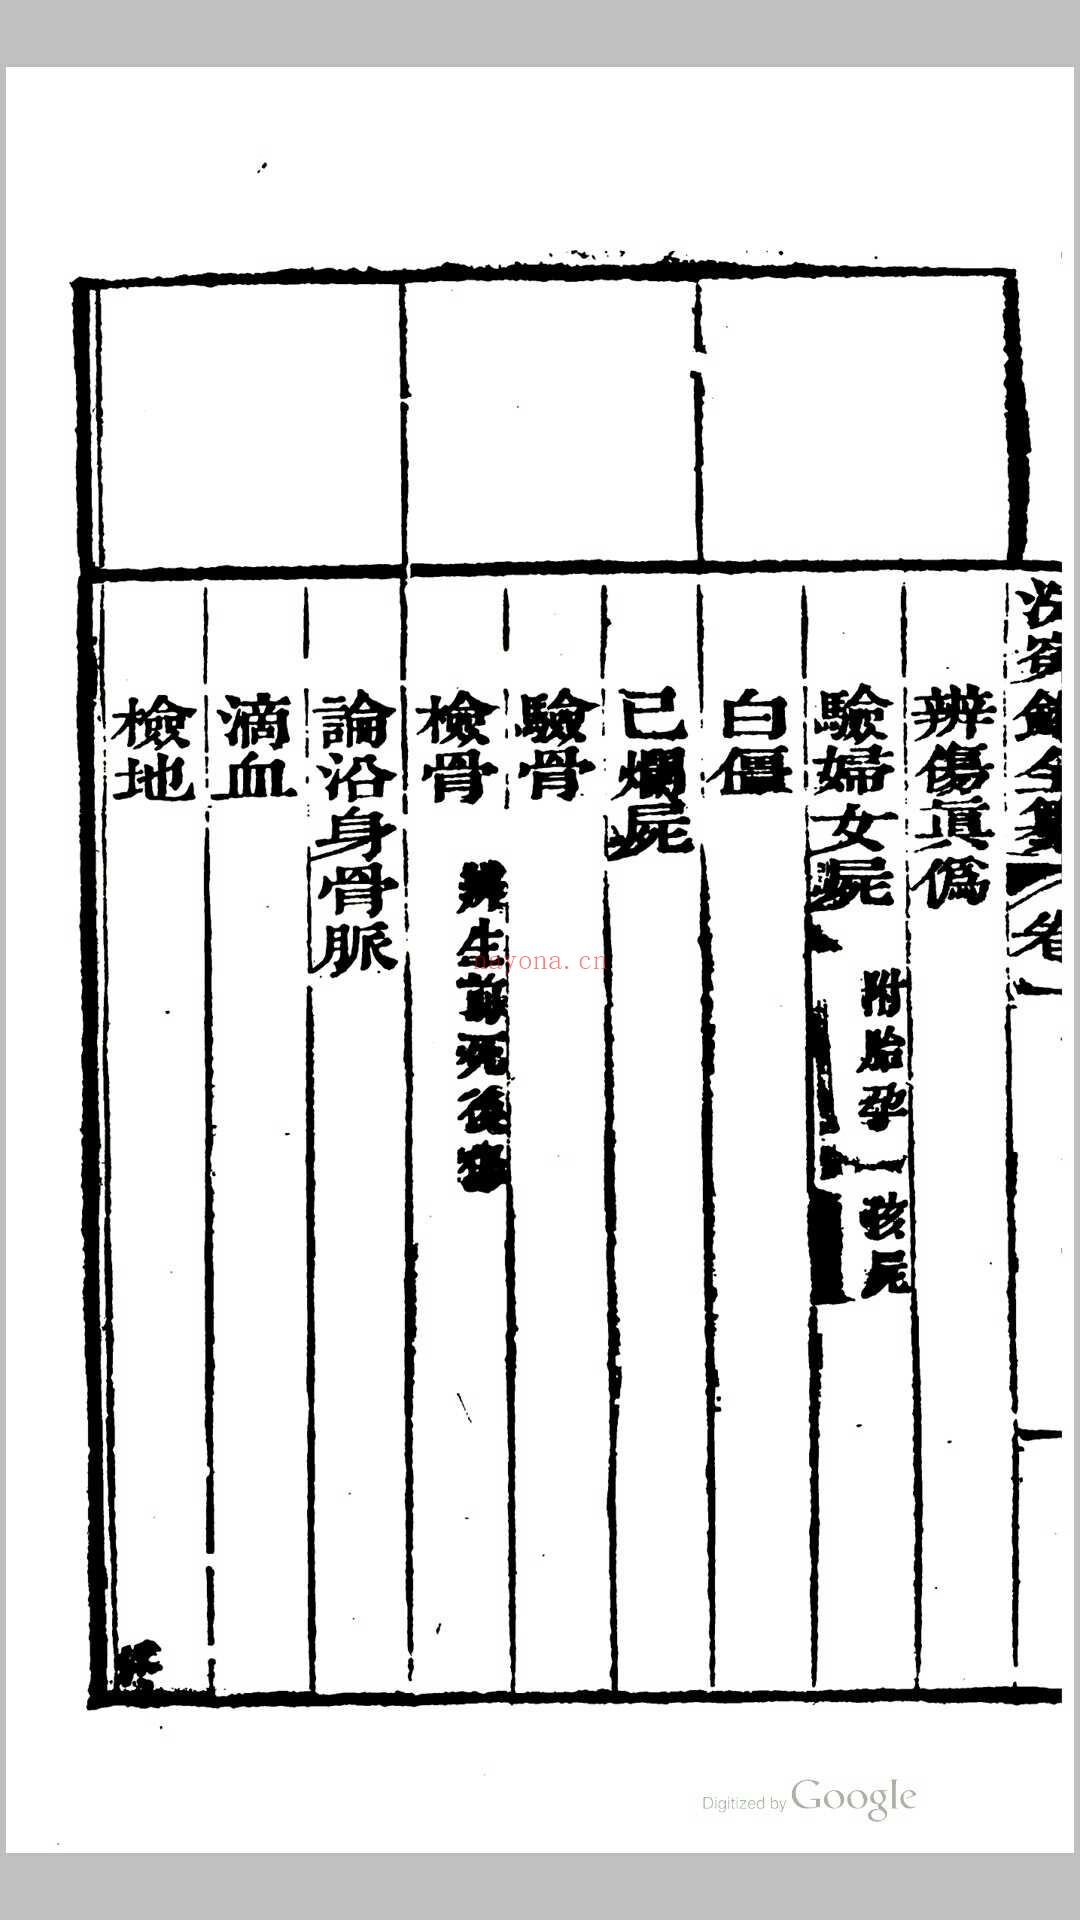 洗冤錄全纂 卷一 一
辨傷真僞
驗婦女屍 附胎孕 孩屍
白僵
已爛屍
驗骨
檢骨 辨生前死後傷
論沿身骨脈
滴血
檢地
nayona.cn
Digitized by Google